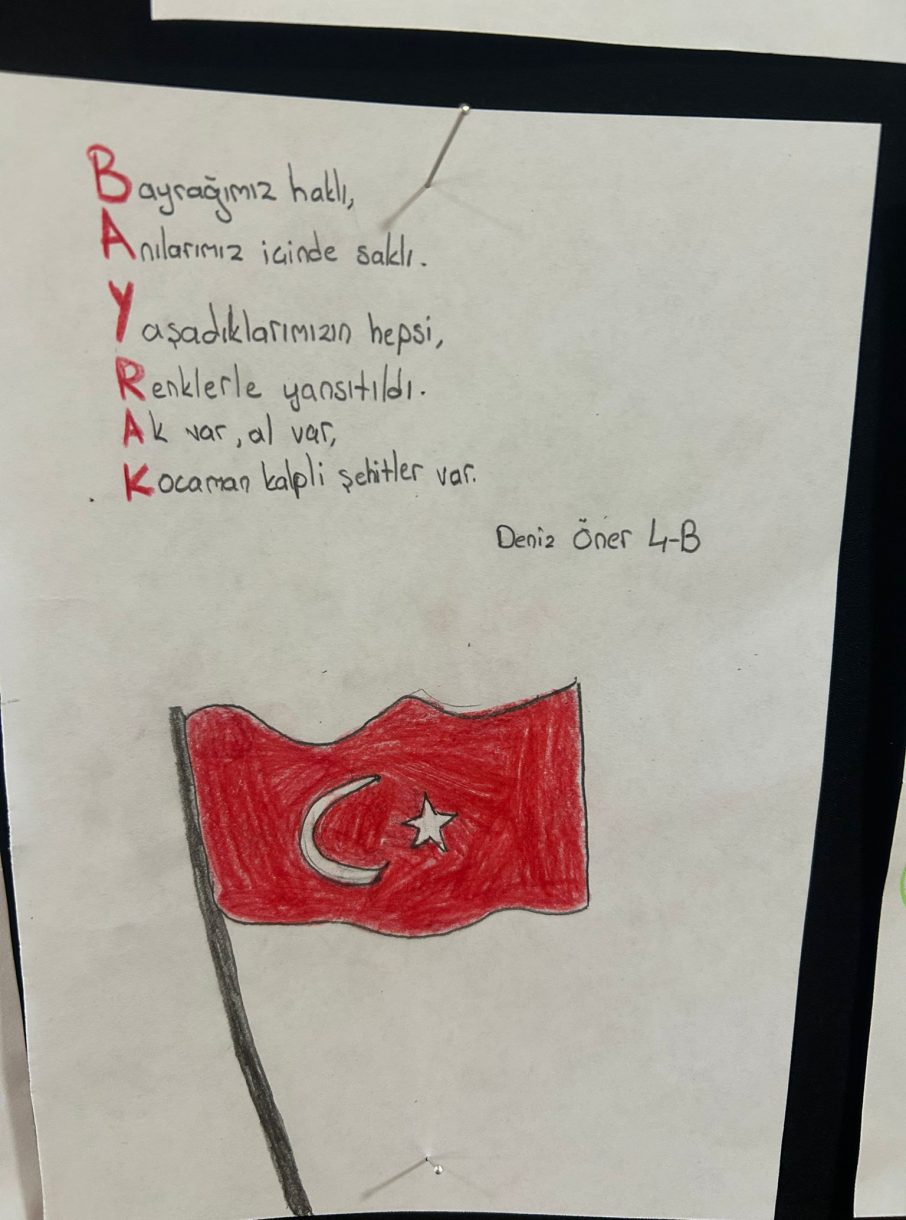 Bayrağımız haklı,
Anılarımız içinde saklı.
Yaşadıklarımızın hepsi,
Renklerle yansıtıldı.
Ak var, al var,
Kocaman kalpli şehitler var.
Deniz Öner 4-B